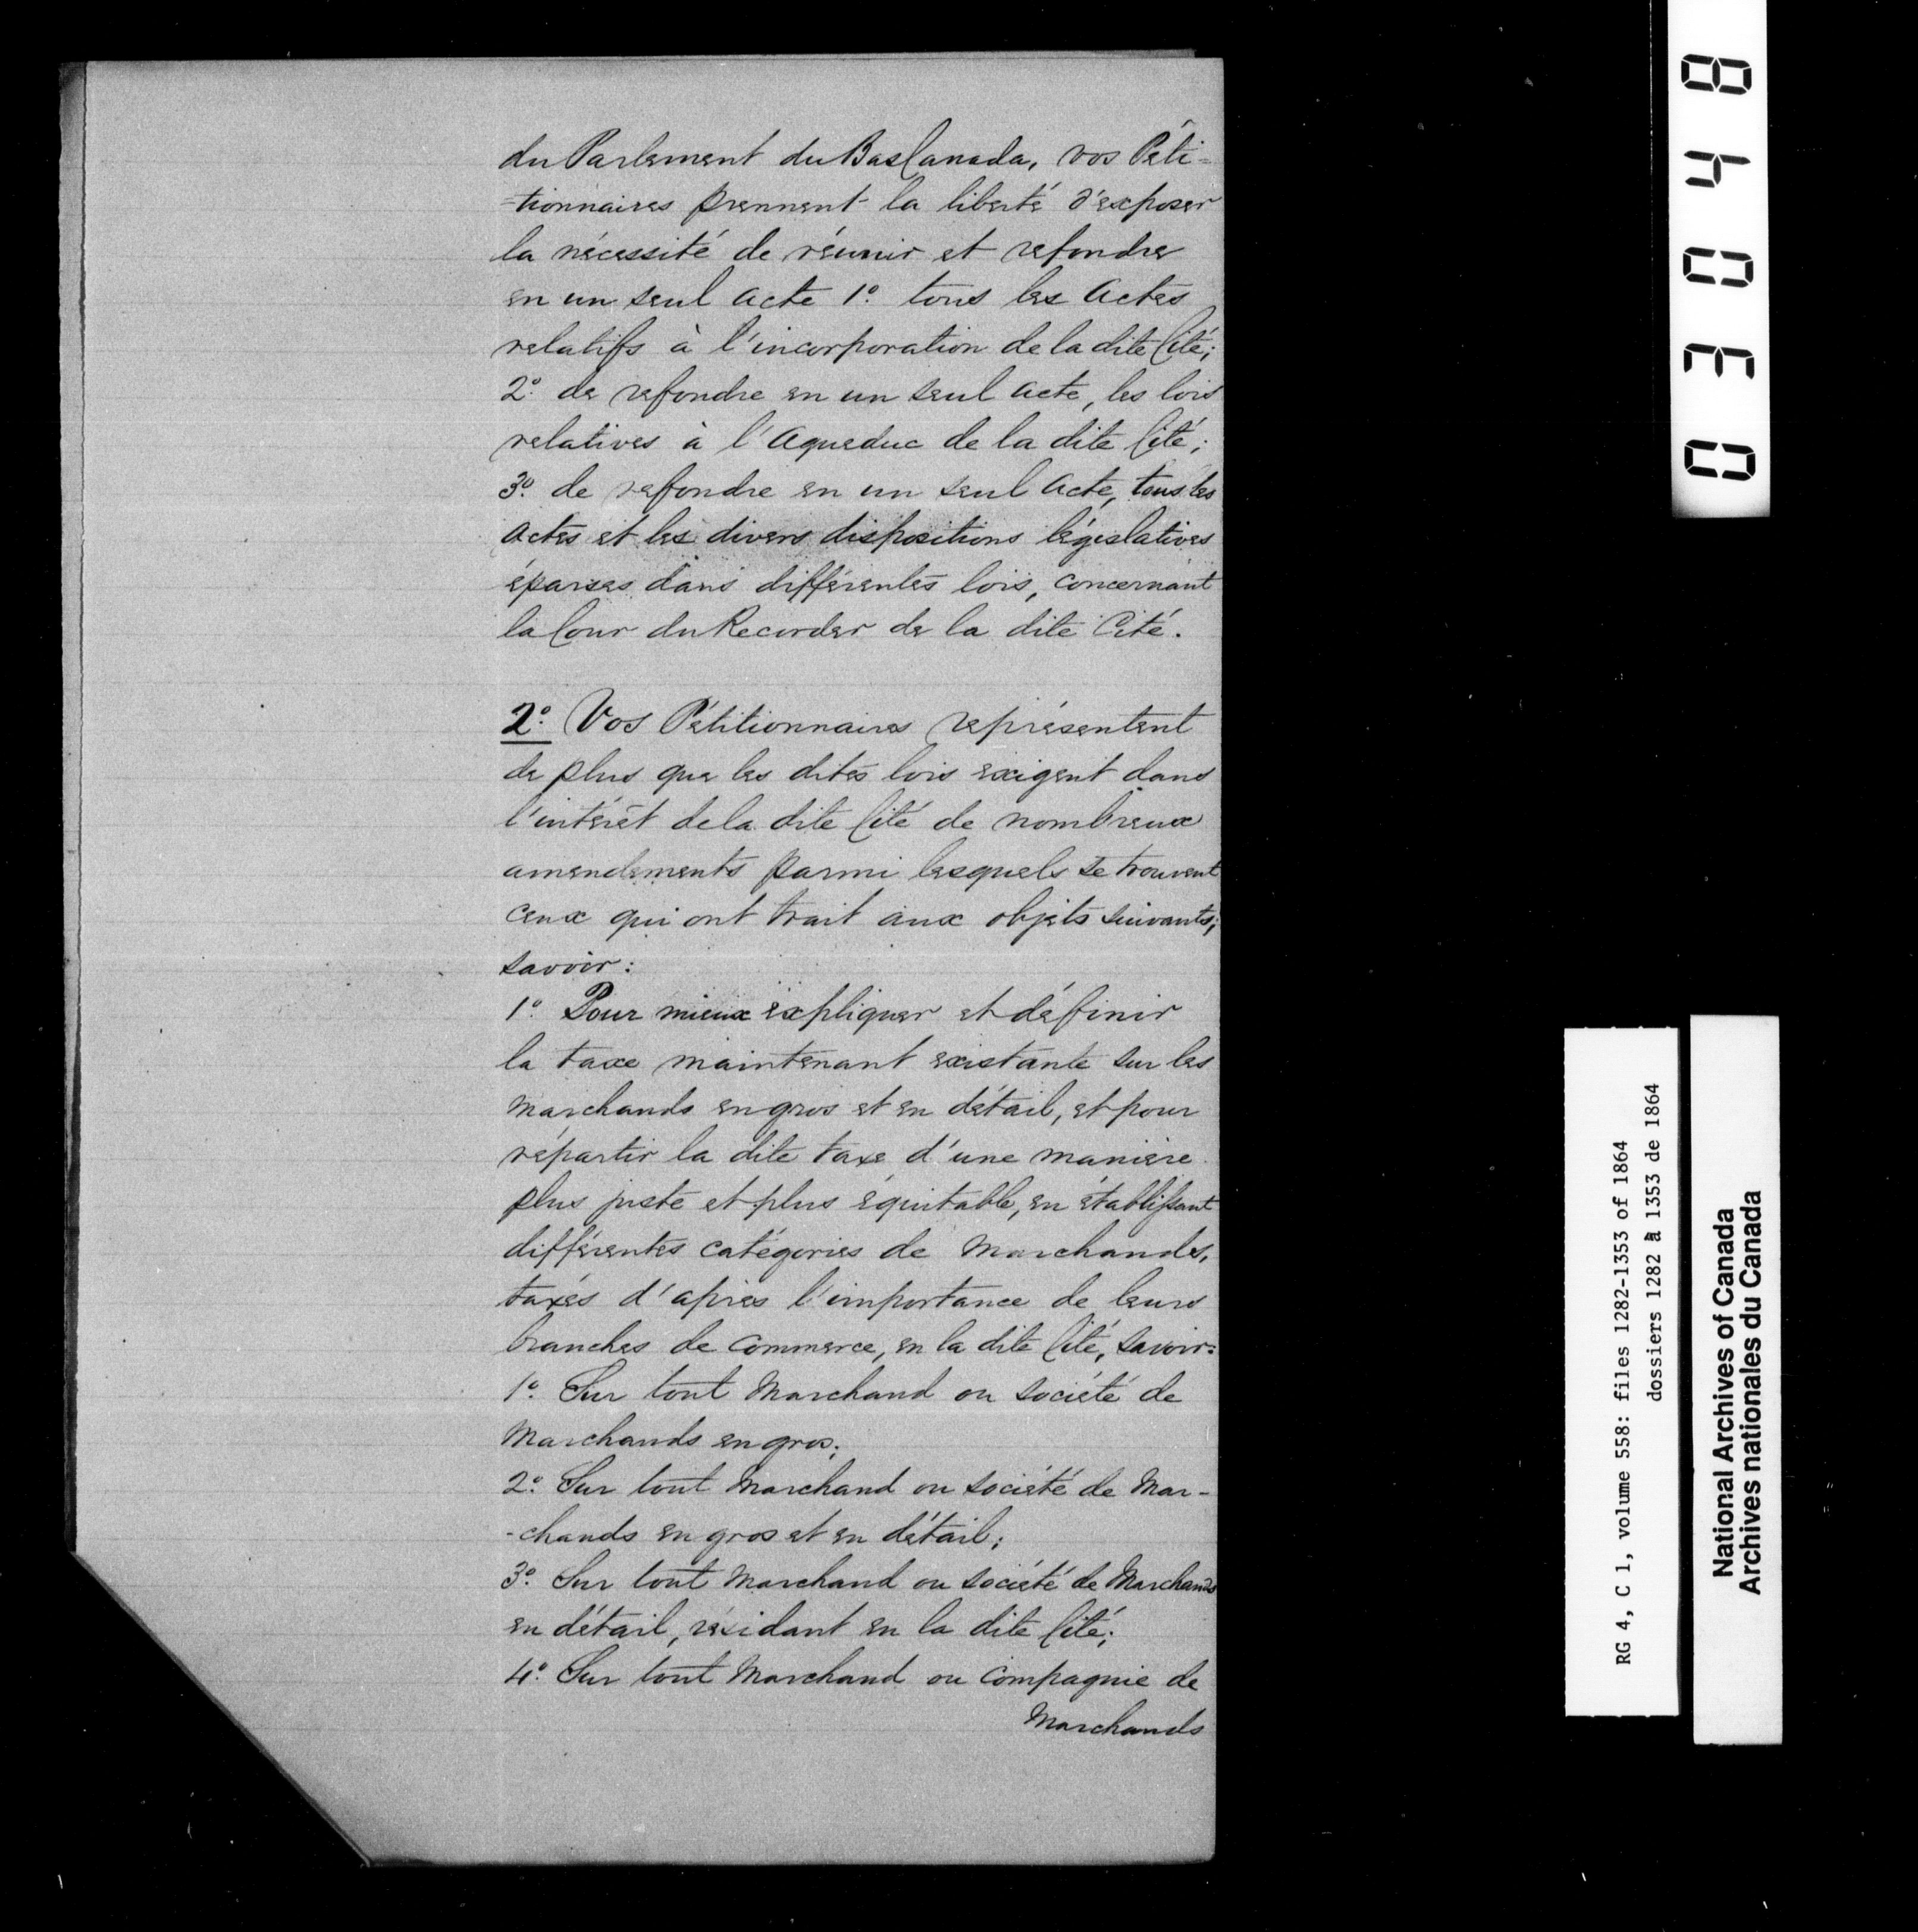 du Parlement du Bas Canada, vos Péti-
-tionnaires prennent la liberté d'exposer
la nécessité de réunir et refondre
en un seul acte 1º. tous les Actes
relatifs à l'incorporation de la dite Cité;
2º. de refondre en un seul acte, les lois
relatives à l'Aqueduc de la dite Cité;
3º. de refondre en un seul Acte, tous les
actes et les divers dispositions législatives
éparses dans différentes lois, concernant
la Cour du Recorder de la dite Cité.
2º. Vos Pétitionnaires représentent
de plus que les dites lois exigent dans
l'intérêt de la dite Cité de nombreux
amendements parmi lesquels se trouvent
ceux qui ont trait aux objets suivants;
savoir:
1º. Pour mieux expliquer et définir
la taxe maintenant existante sur les
Marchands en gros et en détail, et pour
répartir la dite taxe d'une manière
plus juste et plus équitable, en établissant
différentes catégories de Marchands,
taxés d'après l'importance de leurs
branches de commerce, en la dite Cité, savoir:
1º. Sur tout Marchand ou société de
Marchands en gros;
2º. Sur tout Marchand ou société de Mar-
-chands en gros et en détail;
3º. Sur tout Marchand ou société de Marchands
en détail, résidant en la dite Cité;
4º. Sur tout Marchand ou compagnie de
Marchands
03048
RG 4, C 1, volume 558: files 1282-1353 of 1864
dossiers 1282 à 1353 de 1864
National Archives of Canada
Archives nationales du Canada